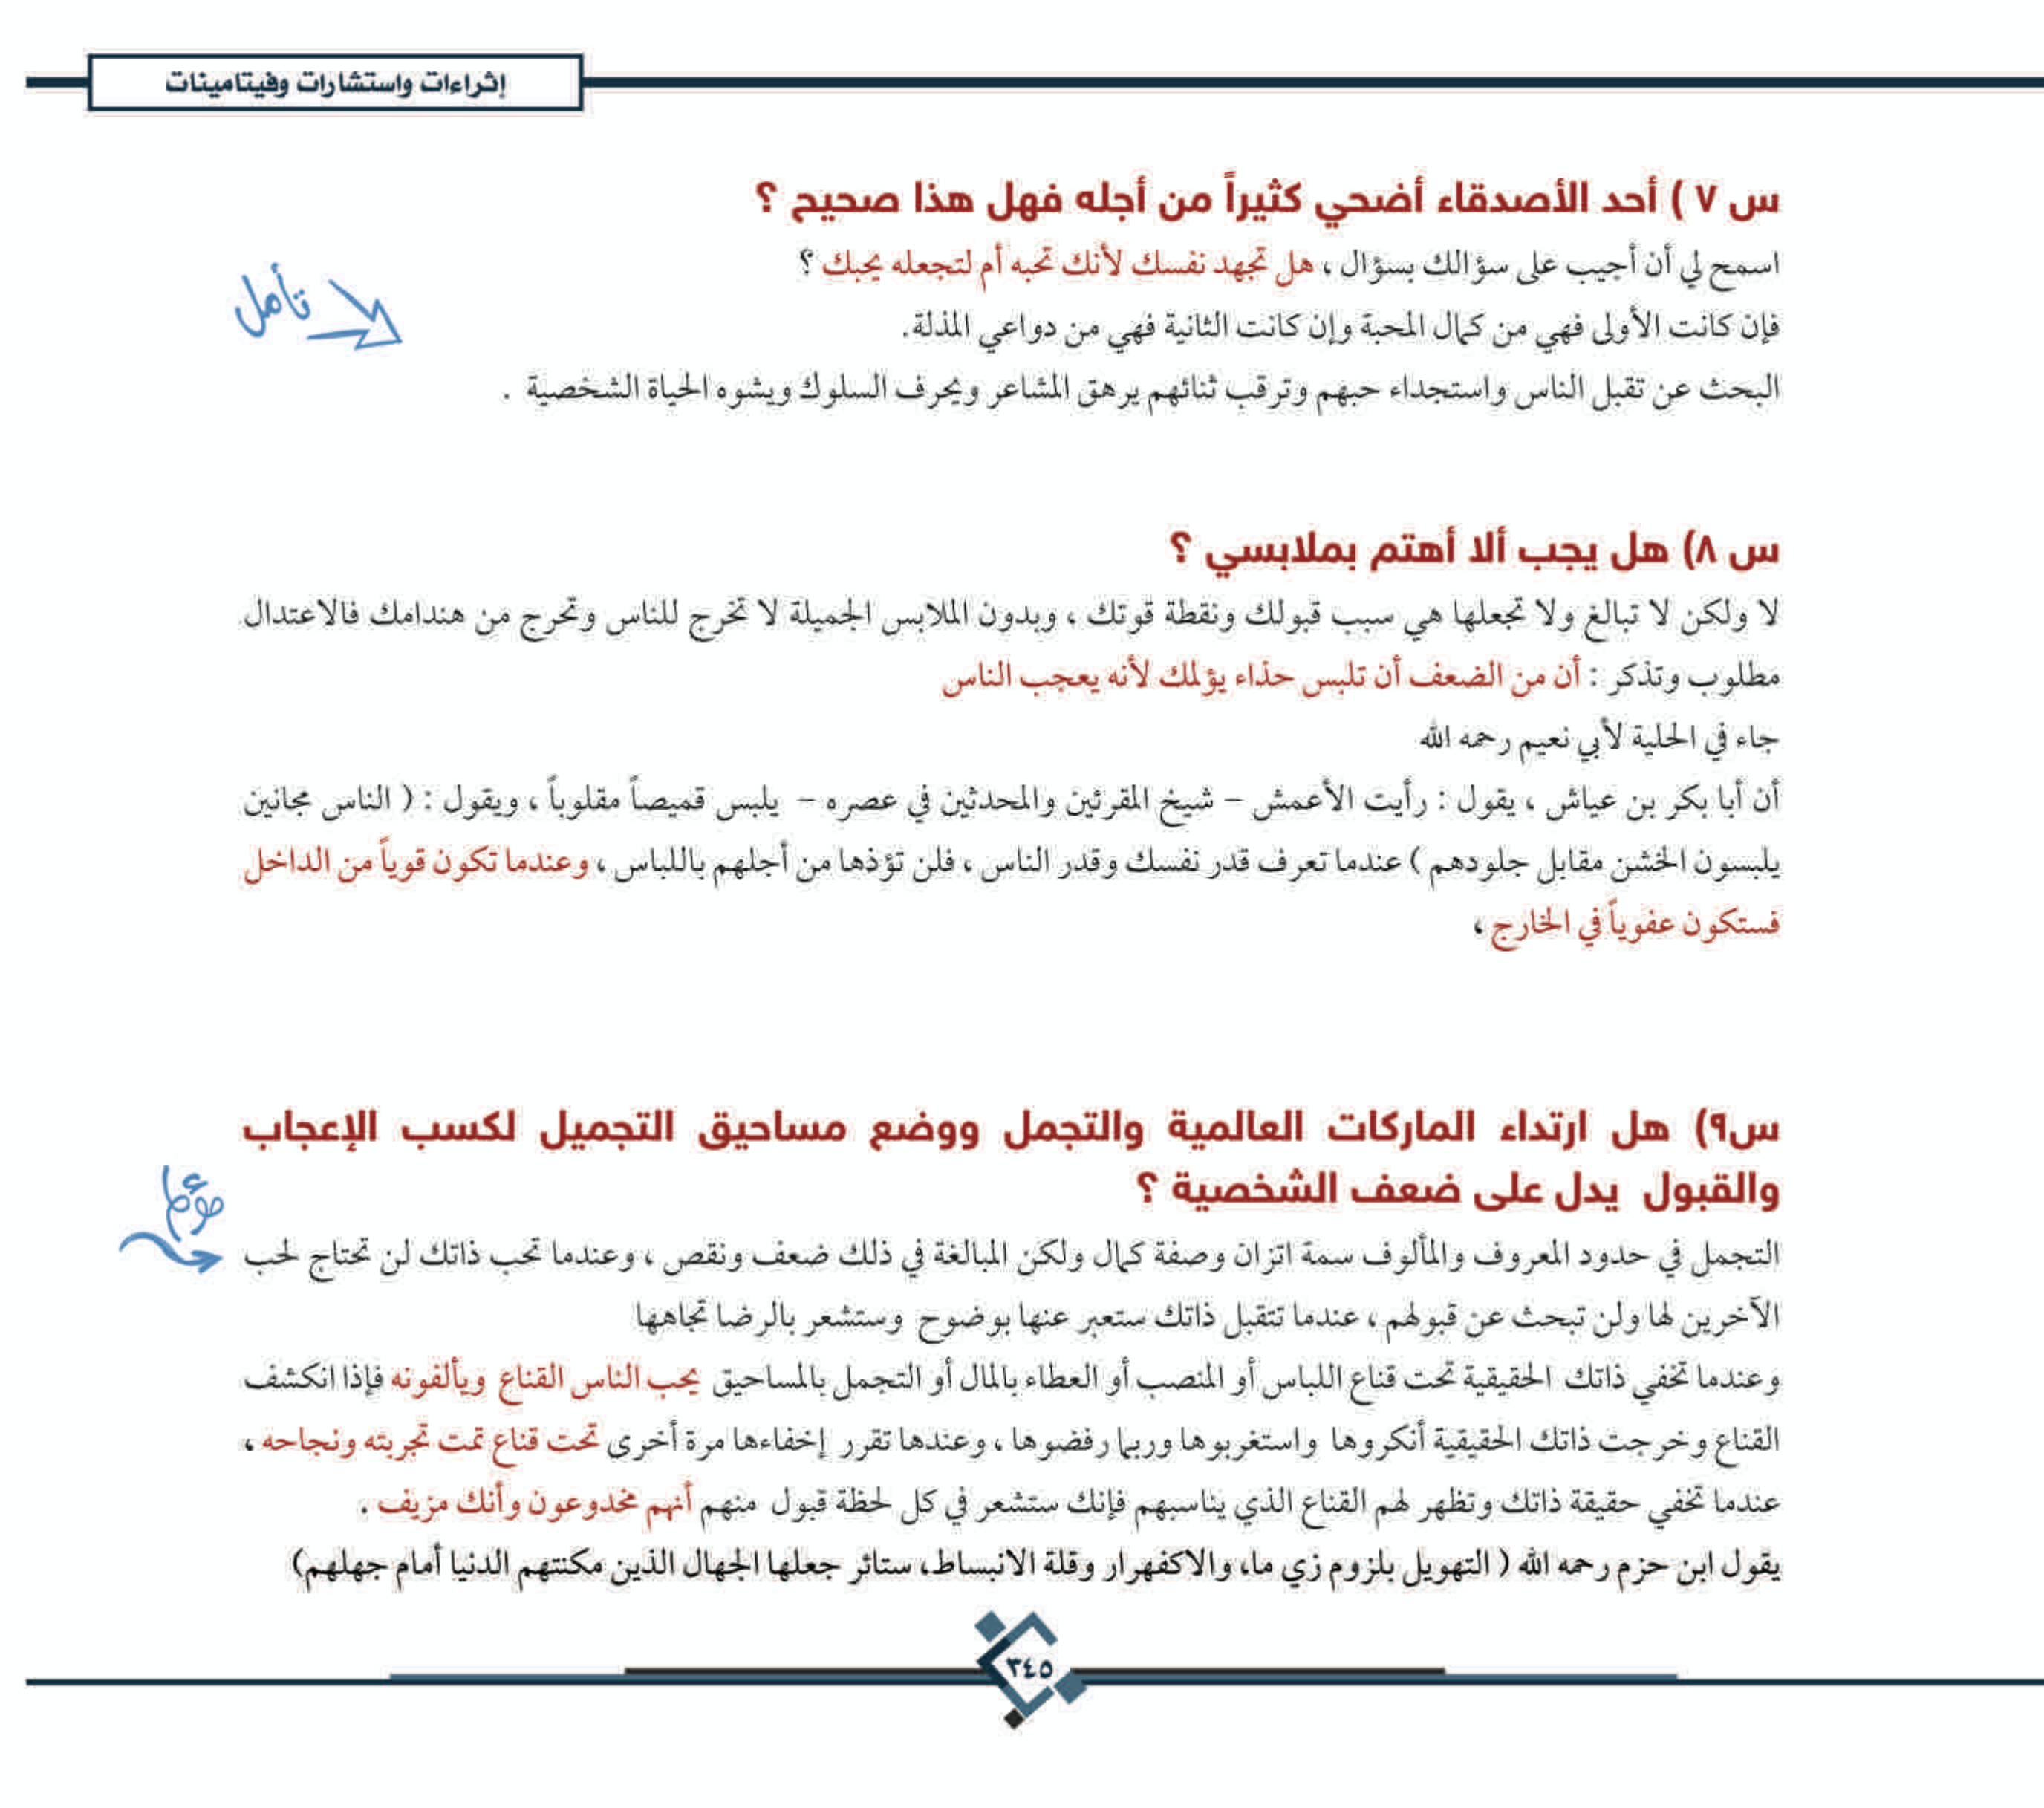 إثراءات واستشارات وفيتامينات
س ٧ ) أحد الأصدقاء أضحي كثيراً من أجله فهل هذا صحيح ؟
اسمح لي أن أجيب على سؤالك بسؤال ، هل تجهد نفسك لأنك تحبه أم لتجعله يحبك ؟
تأمل
فإن كانت الأولى فهي من كمال المحبة وإن كانت الثانية فهي من دواعي المذلة.
البحث عن تقبل الناس واستجداء حبهم وترقب ثنائهم يرهق المشاعر ويحرف السلوك ويشوه الحياة الشخصية .
س ٨) هل يجب ألا أهتم بملابسي ؟
لا ولكن لا تبالغ ولا تجعلها هي سبب قبولك ونقطة قوتك ، وبدون الملابس الجميلة لا تخرج للناس وتحرج من هندامك فالاعتدال
مطلوب وتذكر : أن من الضعف أن تلبس حذاء يؤلمك لأنه يعجب الناس
جاء في الحلية لأبي نعيم رحمه الله
أن أبا بكر بن عياش ، يقول : رأيت الأعمش – شيخ المقرئين والمحدثين في عصره – يلبس قميصاً مقلوباً ، ويقول : ( الناس مجانين
يلبسون الخشن مقابل جلودهم ) عندما تعرف قدر نفسك وقدر الناس ، فلن تؤذها من أجلهم باللباس ، وعندما تكون قوياً من الداخل
فستكون عفوياً في الخارج ،
س٩) هل ارتداء الماركات العالمية والتجمل ووضع مساحيق التجميل لكسب الإعجاب
والقبول يدل على ضعف الشخصية ؟
التجمل في حدود المعروف والمألوف سمة اتزان وصفة كمال ولكن المبالغة في ذلك ضعف ونقص ، وعندما تحب ذاتك لن تحتاج لحب
الآخرين لها ولن تبحث عن قبولهم ، عندما تتقبل ذاتك ستعبر عنها بوضوح وستشعر بالرضا تجاهها
وعندما تخفي ذاتك الحقيقية تحت قناع اللباس أو المنصب أو العطاء بالمال أو التجمل بالمساحيق يحب الناس القناع ويألفونه فإذا انكشف
القناع وخرجت ذاتك الحقيقية أنكروها واستغربوها وربما رفضوها ، وعندها تقرر إخفاءها مرة أخرى تحت قناع تمت تجربته ونجاحه ،
عندما تخفي حقيقة ذاتك وتظهر لهم القناع الذي يناسبهم فإنك ستشعر في كل لحظة قبول منهم أنهم مخدوعون وأنك مزيف .
يقول ابن حزم رحمه الله ( التهويل بلزوم زي ما، والاكفهرار وقلة الانبساط، ستائر جعلها الجهال الذين مكنتهم الدنيا أمام جهلهم)
٣٤٥